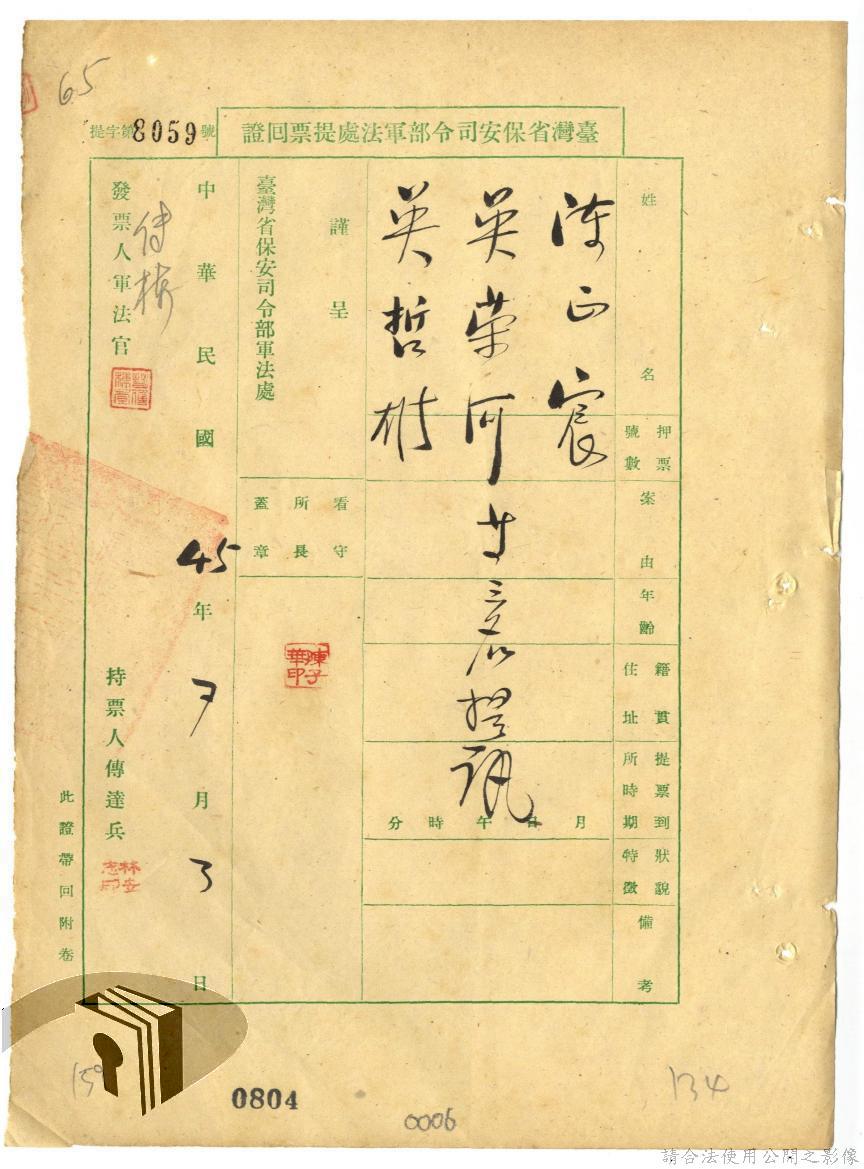 65
提字第8059號
臺灣省保安司令部軍法處提票回證
姓名
押票號數
案由
年齡
籍貫住址
提票到所時期
狀貌特徵
備考
陳正宸
吳榮河
廿三名提訊
吳哲
月日午時分
謹呈
臺灣省保安司令部軍法處
看守所長蓋章
陳子華印
中華民國45年7月3日
發票人軍法官
持票人傳達兵
此證帶回附卷
0804
0006
134
請合法使用公開之影像